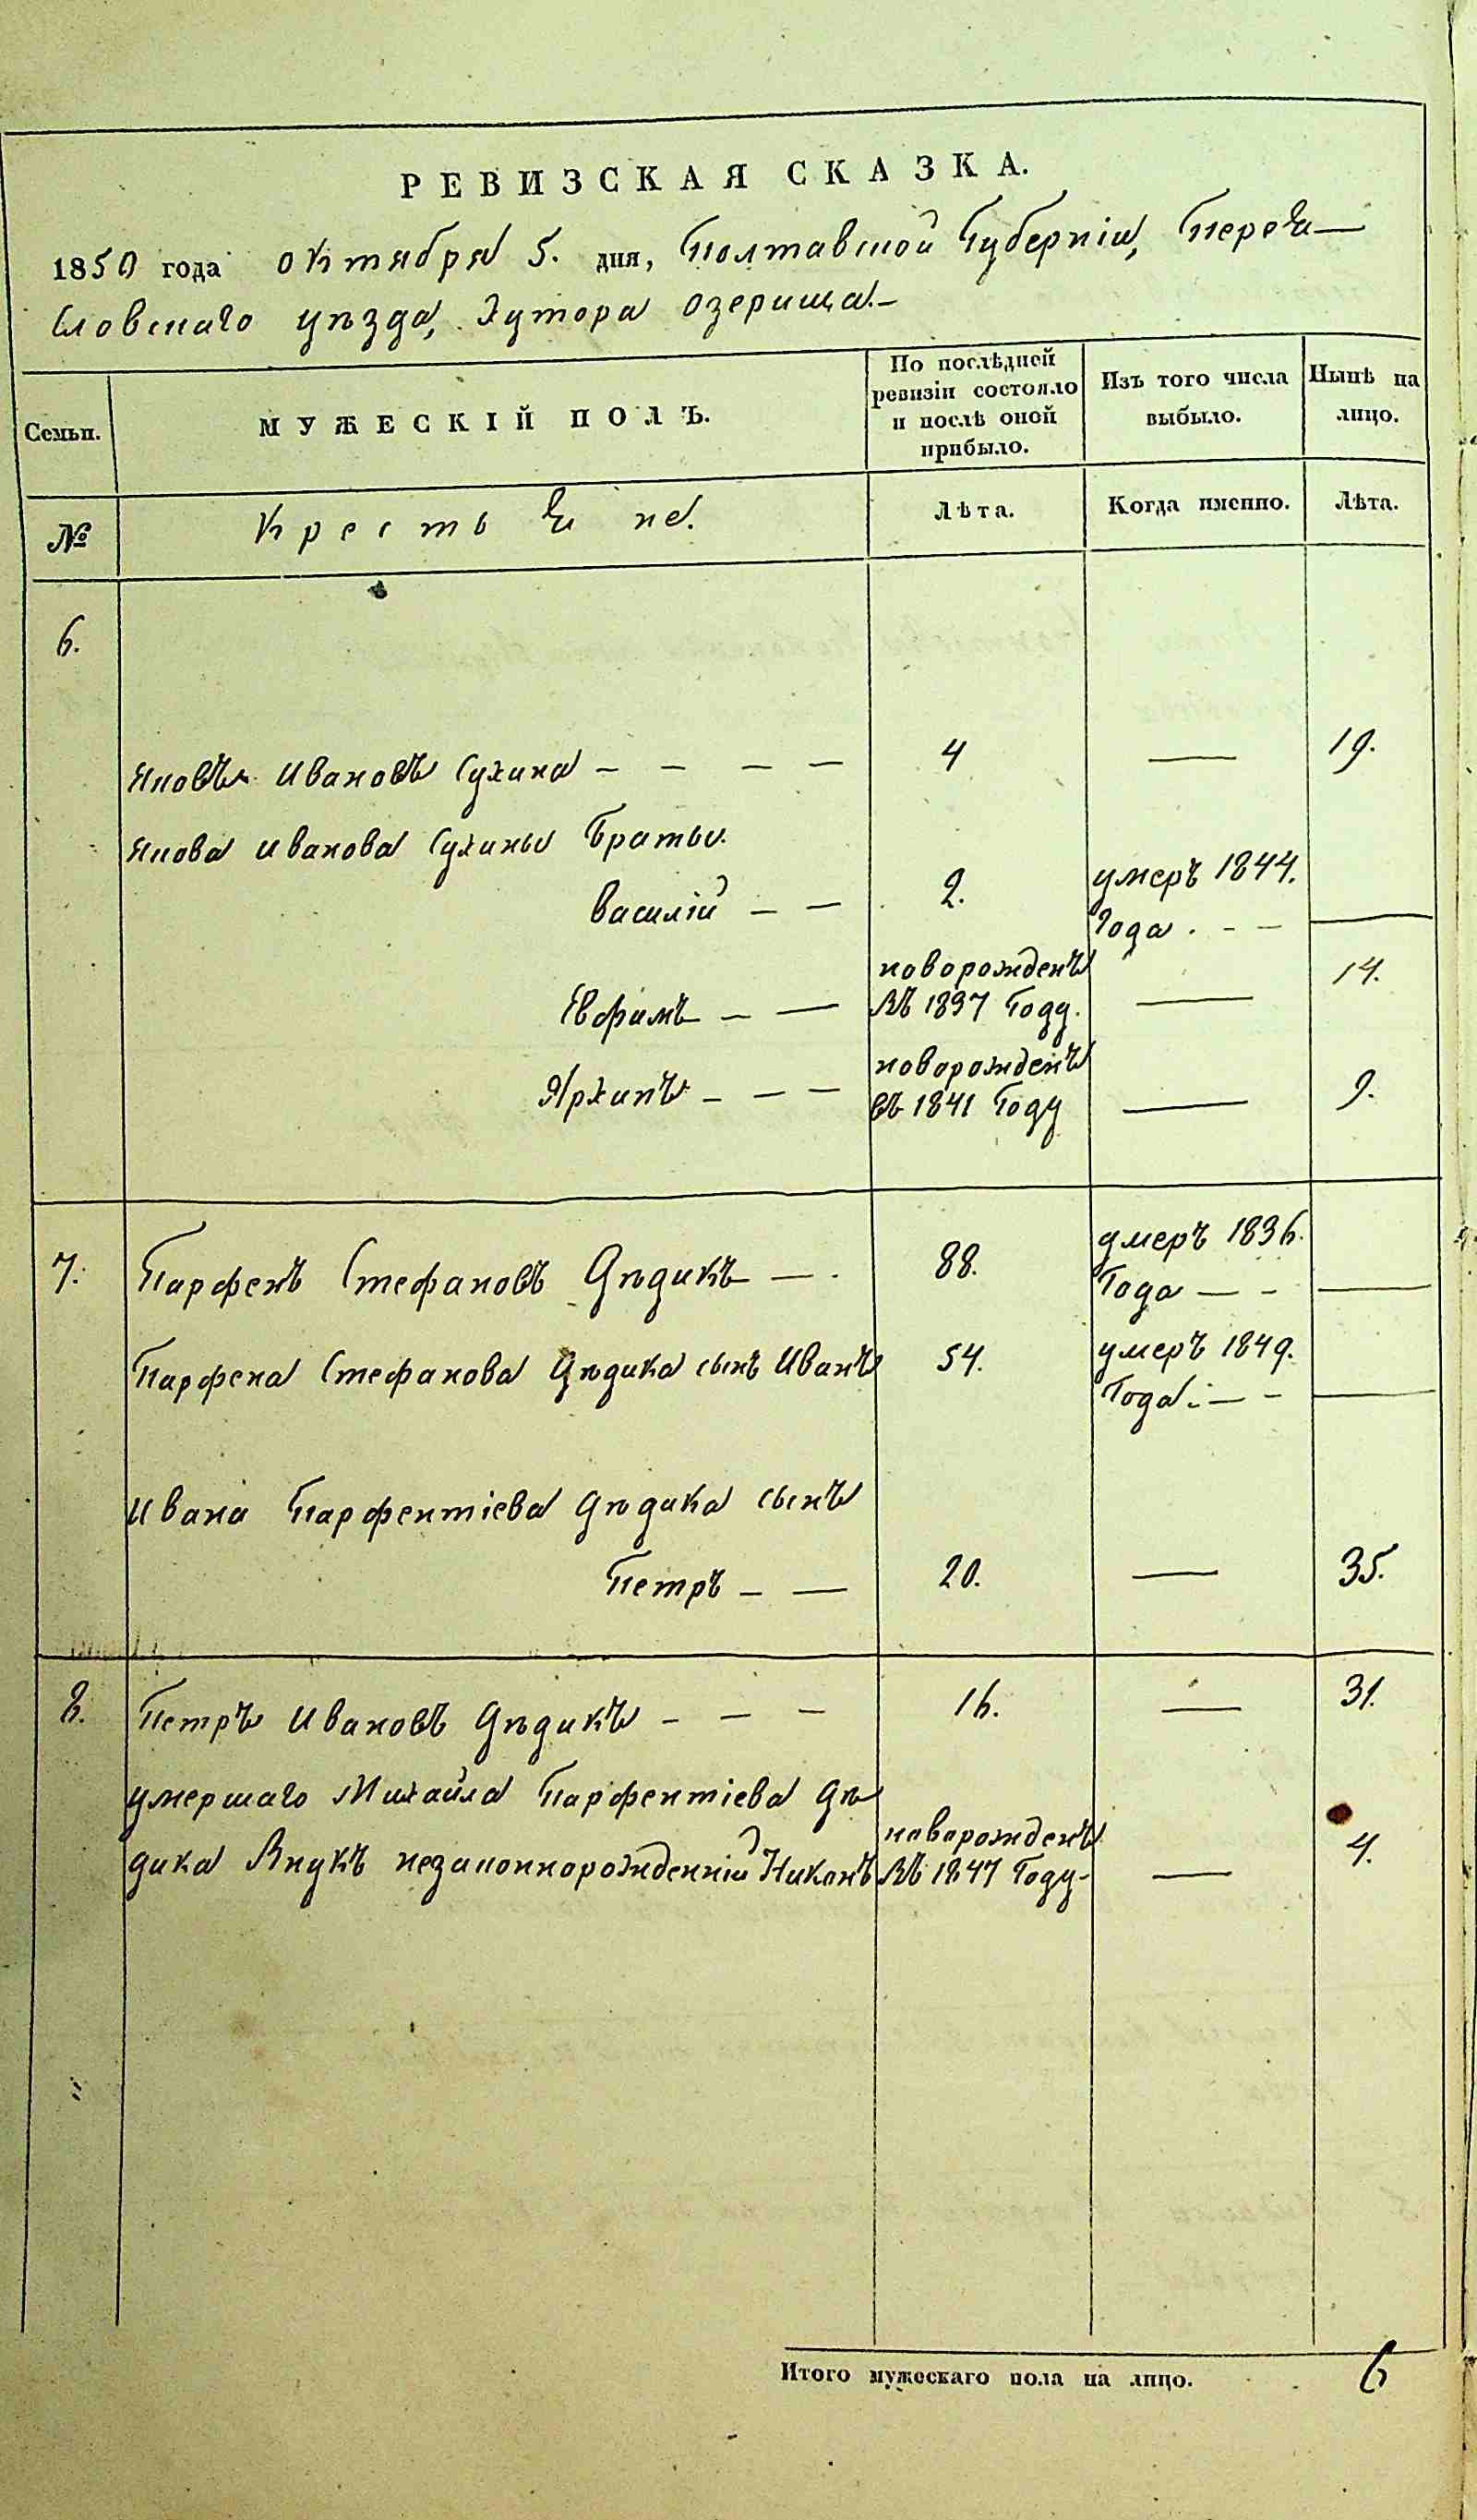 РЕВИЗСКАЯ СКАЗКА.
1850 года октября 5. дня, Полтавской Губерніи, Перея—
словскаго уѣзда, Хутора Озерища.—
Семьи.
МУЖЕСКІЙ ПОЛЪ.
По послѣдней ревизіи состояло и послѣ оной прибыло.
Изъ того числа выбыло.
Нынѣ на лицо.
№
Крестьяне.
Лѣта.
Когда именно.
Лѣта.
6.
Яковъ Ивановъ Сухина — — — — 4 — 19.
Якова Иванова Сухины братьи.
Василій — — 2. умеръ 1844.
Года . - — —
Евфимъ — — новорожденъ въ 1837 Году. — 14.
Архипъ — — — новорожденъ въ 1841 Году — 9.
7. Парфенъ Стефановъ Дѣдикъ — . 88. умеръ 1836.
Года — - —
Парфена Стефанова Дѣдика сынъ Иванъ 54. умеръ 1849.
Года. — - —
Ивана Парфентіева Дѣдика сынъ
Петръ — — 20. — 35.
8. Петръ Ивановъ Дѣдикъ — — — 16. — 31.
умершаго Михайла Парфентіева Дѣ
дика Внукъ незаконнорожденній Никонъ новорожденъ въ 1847 Году — 4.
Итого мужескаго пола на лицо. 6